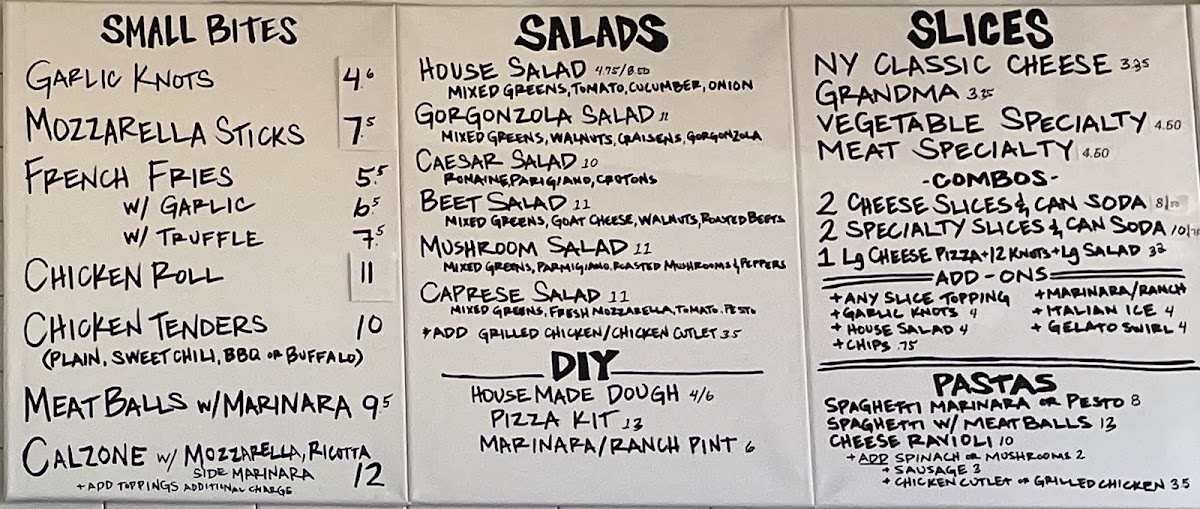 SMALL BITES
GARLIC KNOTS 4.6
MOZZARELLA STICKS 7.5
FRENCH FRIES 5.5
W/ GARLIC 6.5
W/ TRUFFLE 7.5
CHICKEN ROLL 11
CHICKEN TENDERS 10
(PLAIN, SWEET CHILI, BBQ OR BUFFALO)
MEATBALLS W/MARINARA 9.5
CALZONE W/ MOZZARELLA, RICOTTA
SIDE MARINARA 12
+ ADD TOPPINGS ADDITIONAL CHARGE
SALADS
HOUSE SALAD 4.75/8.50
MIXED GREENS, TOMATO, CUCUMBER, ONION
GORGONZOLA SALAD 11
MIXED GREENS, WALNUTS, CRAISENS, GORGONZOLA
CAESAR SALAD 10
ROMAINE, PARIGIANO, CROTONS
BEET SALAD 11
MIXED GREENS, GOAT CHEESE, WALNUTS, ROASTED BEETS
MUSHROOM SALAD 11
MIXED GREENS, PARMIGIANO, ROASTED MUSHROOMS & PEPPERS
CAPRESE SALAD 11
MIXED GREENS, FRESH MOZZARELLA, TOMATO, PESTO
+ADD GRILLED CHICKEN/CHICKEN CUTLET 3.5
DIY
HOUSE MADE DOUGH 4/6
PIZZA KIT 13
MARINARA/RANCH PINT 6
SLICES
NY CLASSIC CHEESE 3.25
GRANDMA 3.25
VEGETABLE SPECIALTY 4.50
MEAT SPECIALTY 4.50
-COMBOS-
2 CHEESE SLICES & CAN SODA 8/50
2 SPECIALTY SLICES & CAN SODA 10/75
1 Lg CHEESE PIZZA+12 KNOTS+Lg SALAD 32
ADD-ONS
+ANY SLICE TOPPING
+GARLIC KNOTS 4
+HOUSE SALAD 4
+CHIPS .75
+MARINARA/RANCH
+ITALIAN ICE 4
+GELATO SWIRL 4
PASTAS
SPAGHETTI MARINARA OR PESTO 8
SPAGHETTI W/ MEATBALLS 13
CHEESE RAVIOLI 10
+ADD SPINACH OR MUSHROOMS 2
+SAUSAGE 3
+CHICKEN CUTLET OR GRILLED CHICKEN 3.5